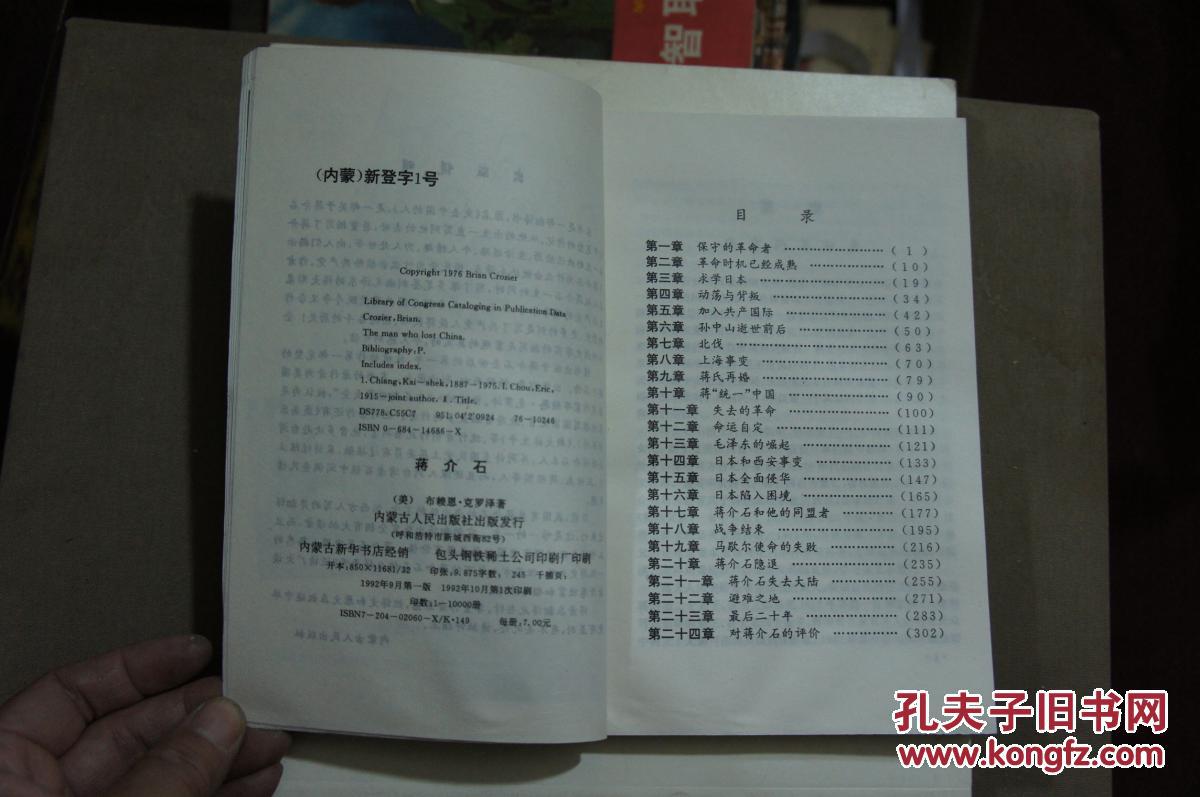 智
(内蒙)新登字1号
Copyright 1976 Brian Crozier
Library of Congress Cataloging in Publication Data
Crozier, Brian.
The man who lost China.
Bibliography, P.
Includes index.
1. Chiang, Kai-shek, 1887-1975. I. Chou, Eric,
1915-joint author. Ⅱ. Title.
DS778. C55C7 951. 04'2'0924 76-10246
ISBN 0-684-14686-X.
蒋 介 石
(美) 布赖恩·克罗泽著
内蒙古人民出版社出版发行
(呼和浩特市新城西街82号)
内蒙古新华书店经销 包头钢铁稀土公司印刷厂印刷
开本:850×11681/32 印张:9.875字数: 245 千插页:
1992年9月第一版 1992年10月第1次印刷
印数:1—10000册
ISBN7-204-02060-X/K·149 每册:7.00元
目 录
第一章 保守的革命者 ……………… ( 1 )
第二章 革命时机已经成熟 ……………… (10)
第三章 求学日本 ……………… (19)
第四章 动荡与背叛 ……………… (34)
第五章 加入共产国际 ……………… (42)
第六章 孙中山逝世前后 ……………… (50)
第七章 北伐 ……………… (63)
第八章 上海事变 ……………… (70)
第九章 蒋氏再婚 ……………… (79)
第十章 蒋“统一”中国 ……………… (90)
第十一章 失去的革命 ……………… (100)
第十二章 命运自定 ……………… (111)
第十三章 毛泽东的崛起 ……………… (121)
第十四章 日本和西安事变 ……………… (133)
第十五章 日本全面侵华 ……………… (147)
第十六章 日本陷入困境 ……………… (165)
第十七章 蒋介石和他的同盟者 ……………… (177)
第十八章 战争结束 ……………… (195)
第十九章 马歇尔使命的失败 ……………… (216)
第二十章 蒋介石隐退 ……………… (235)
第二十一章 蒋介石失去大陆 ……………… (255)
第二十二章 避难之地 ……………… (271)
第二十三章 最后二十年 ……………… (283)
第二十四章 对蒋介石的评价 ……………… (302)
孔夫子旧书网
www.kongfz.com